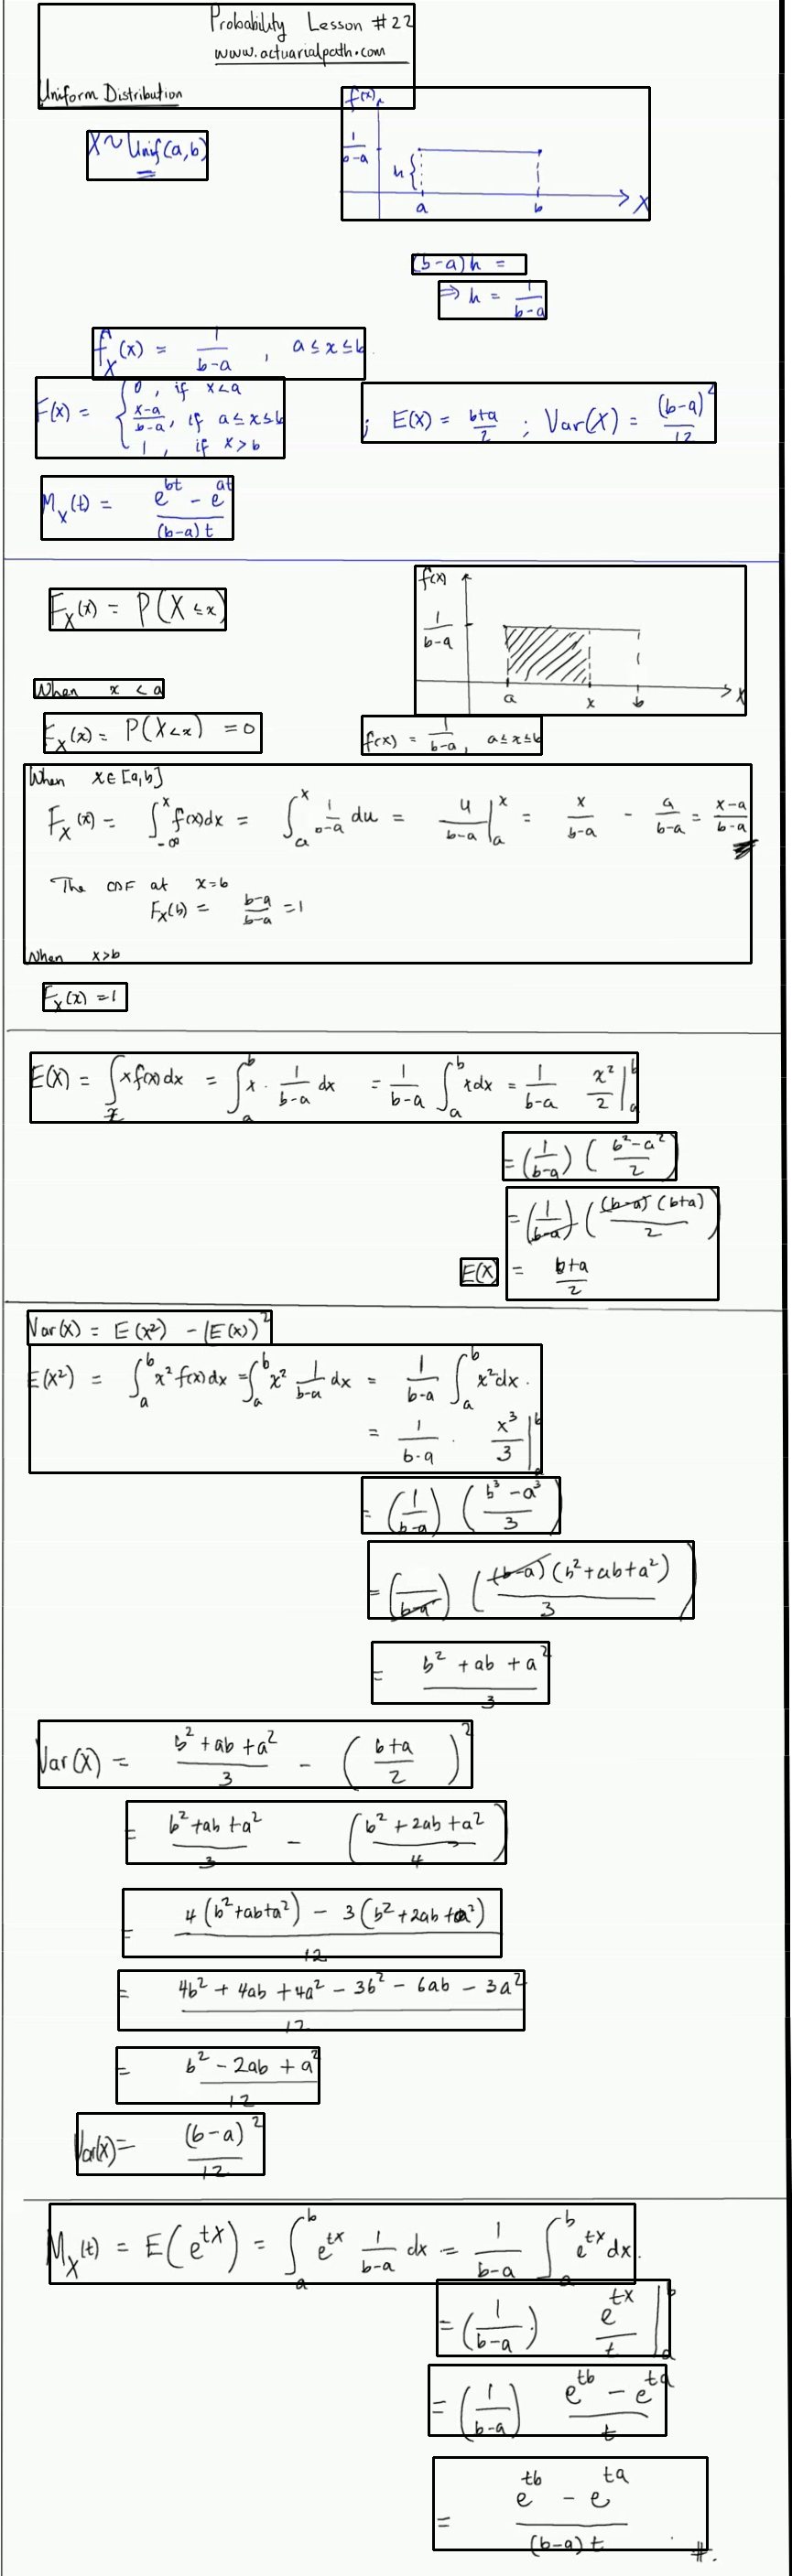 Probability Lesson #22
www.actuarialpath.com
Uniform Distribution
X ~ Unif(a,b)
f(x)
1/(b-a)
h {
a b X
(b-a)h =
⇒ h = 1/(b-a)
f_X(x) = 1/(b-a) , a ≤ x ≤ b
F(x) = { 0 , if x<a
(x-a)/(b-a), if a ≤ x ≤ b
1 , if x > b
; E(X) = (b+a)/2 ; Var(X) = (b-a)^2/12
M_X(t) = (e^{bt} - e^{at})/((b-a)t)
F_X(x) = P(X ≤ x)
f(x)
1/(b-a)
a x b X
When x < a
F_X(x) = P(X<x) = 0
f(x) = 1/(b-a), a ≤ x ≤ b
When x ∈ [a,b]
F_X(x) = ∫_{-∞}^{x} f(x)dx = ∫_a^x 1/(b-a) du = u/(b-a) |_a^x = x/(b-a) - a/(b-a) = (x-a)/(b-a)
The CDF at x=b
F_X(b) = (b-a)/(b-a) = 1
When x>b
F_X(x) = 1
E(X) = ∫_x x f(x) dx = ∫_a^b x · 1/(b-a) dx = 1/(b-a) ∫_a^b x dx = 1/(b-a) x^2/2 |_a^b
= (1/(b-a)) ((b^2-a^2)/2)
= (1/(b-a)) ((b-a)(b+a)/2)
E(X) = (b+a)/2
Var(X) = E(X^2) - (E(X))^2
E(X^2) = ∫_a^b x^2 f(x) dx = ∫_a^b x^2 1/(b-a) dx = 1/(b-a) ∫_a^b x^2 dx.
= 1/(b-a) · x^3/3 |_a^b
= (1/(b-a)) ((b^3 - a^3)/3)
= (1/(b-a)) ((b-a)(b^2+ab+a^2)/3)
= (b^2 + ab + a^2)/3
Var(X) = (b^2 + ab + a^2)/3 - ((b+a)/2)^2
= (b^2+ab+a^2)/3 - ((b^2 + 2ab + a^2)/4)
= (4(b^2+ab+a^2) - 3(b^2+2ab+a^2))/12
= (4b^2 + 4ab + 4a^2 - 3b^2 - 6ab - 3a^2)/12
= (b^2 - 2ab + a^2)/12
Var(X) = (b-a)^2/12
M_X(t) = E(e^{tX}) = ∫_a^b e^{tx} 1/(b-a) dx = 1/(b-a) ∫_a^b e^{tx} dx.
= (1/(b-a)) e^{tx}/t |_a^b
= (1/(b-a)) (e^{tb} - e^{ta})/t
= (e^{tb} - e^{ta})/((b-a)t) #.